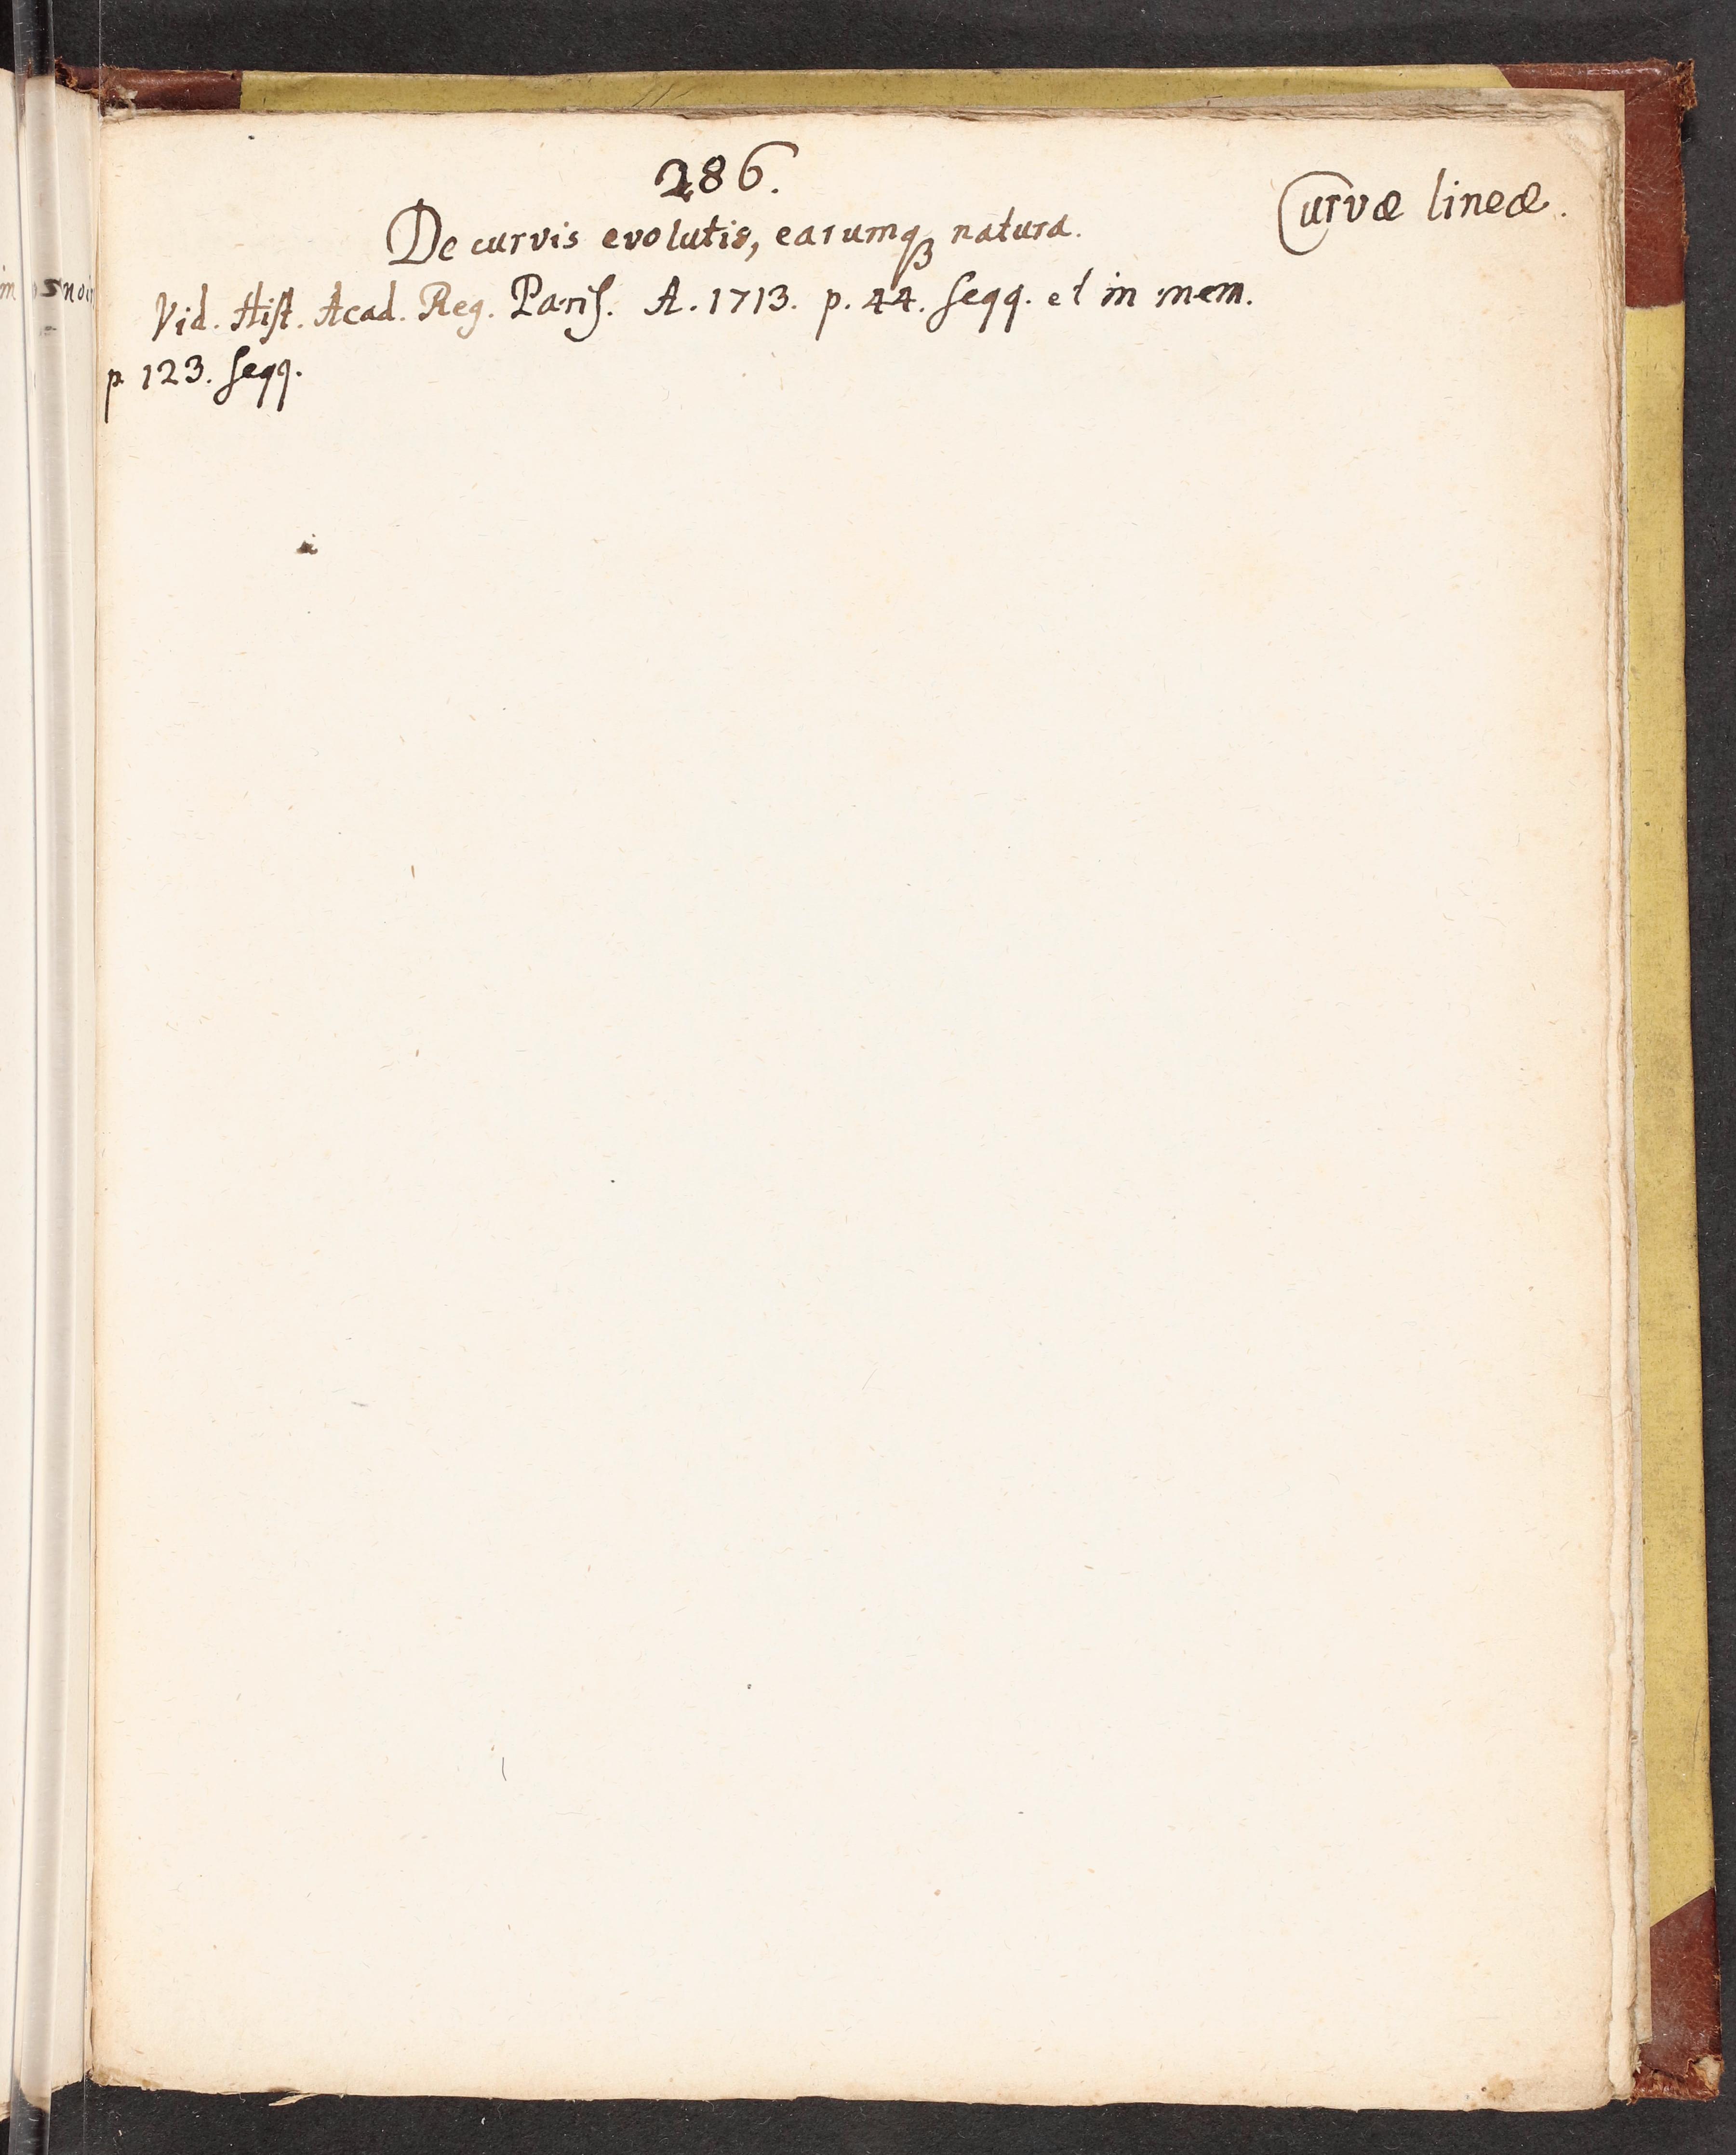 286.
Curvæ lineæ.
De curvis evolutis, earumqꝫ natura.
Vid. Hiſt. Acad. Reg. Pariſ. A. 1713. p. 44. ſeqq. et in mem.
p. 123. ſeqq.